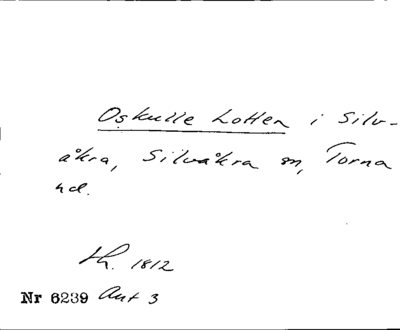 Oskulle Lotten i Silv-
åkra, Silvåkra sn, Torna
hd.
th. 1812
Nr 6239 Ant 3